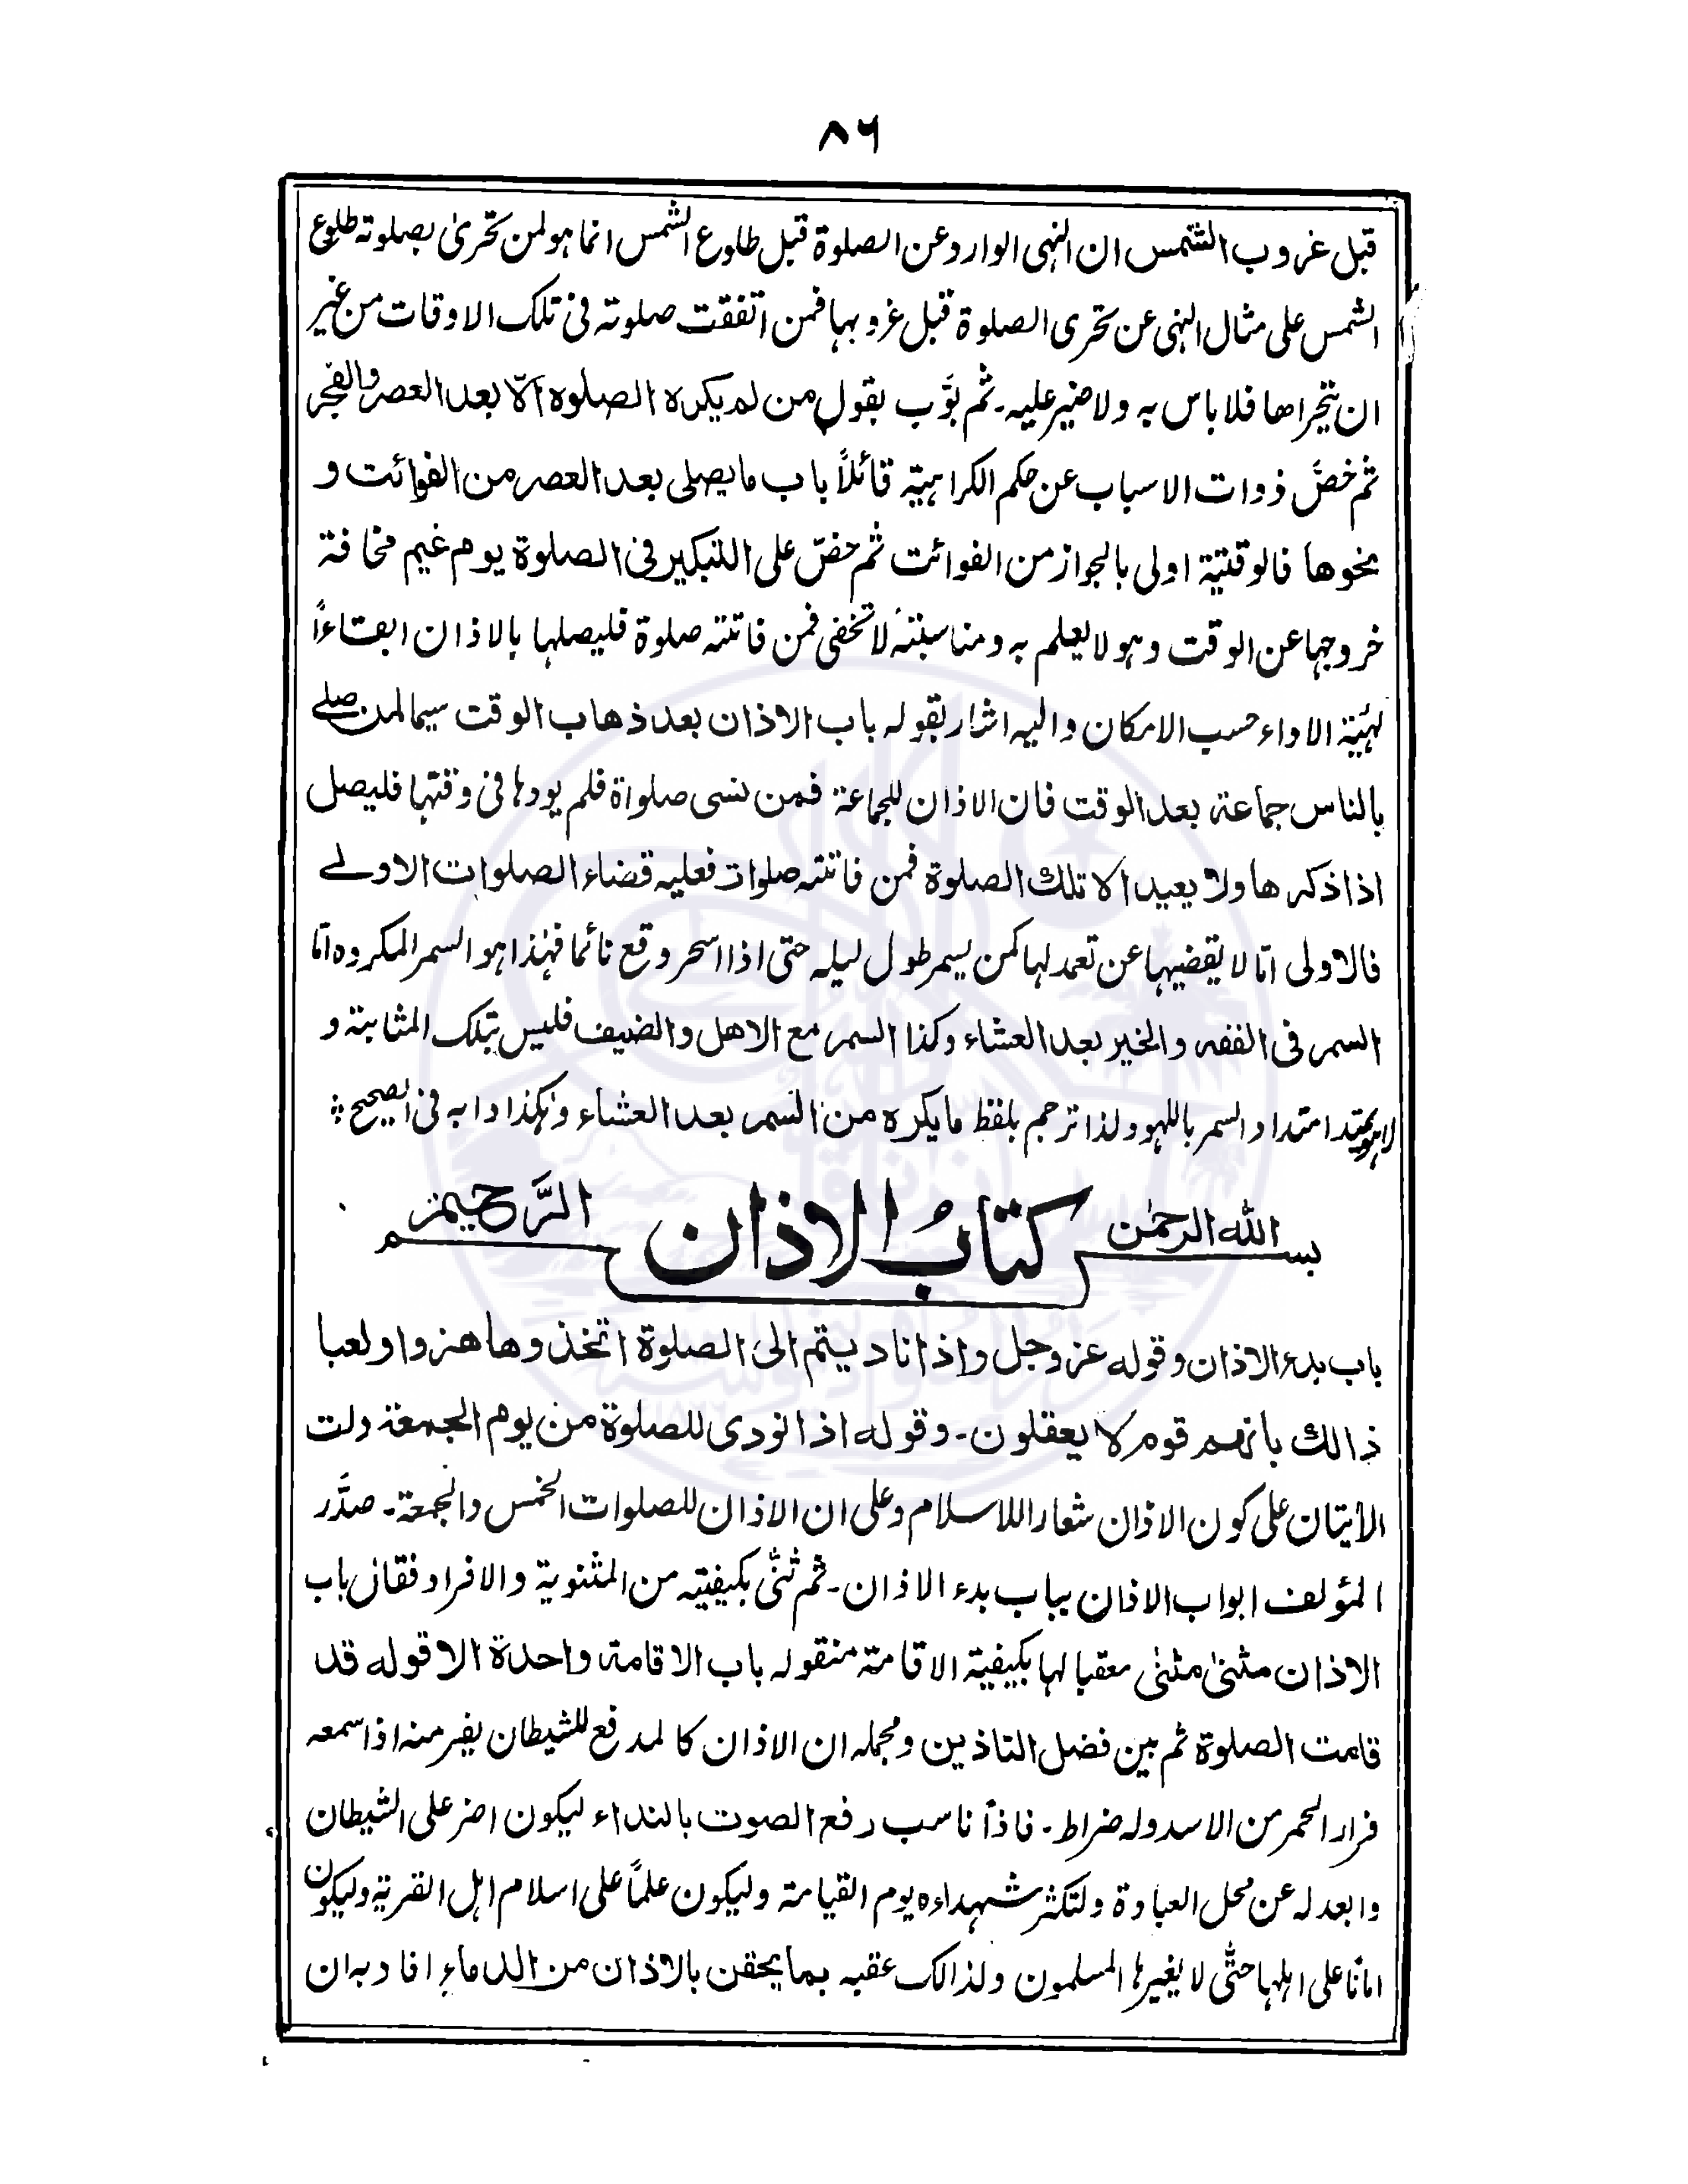 ۸۶
قبل غروب الشمس ان النهی الوارد عن الصلوة قبل طلوع الشمس انما هو لمن تحری بصلوته طلوع
الشمس علی مثال النهی عن تحری الصلوة قبل غروبها فمن اتفقت صلوته فی تلک الاوقات من غیر
ان یتحراها فلا باس به ولا ضیر علیه۔ ثم بوَّب بقول من لم یکره الصلوة الّا بعد العصر والفجر
ثم خصَّ ذوات الاسباب عن حکم الکراهیّة قائلاً باب ما یصلی بعد العصر من الفوائت و
نحوها فالوقتیة اولی بالجواز من الفوائت ثم حضّ علی التبکیر فی الصلوة یوم غیم مخافة
خروجها عن الوقت وهو لا یعلم به ومناسبته لا تخفی فمن فاتته صلوة فلیصلها بالاذان ابقاءاً
لهیئة الاداء حسب الامکان والیه اشار بقوله باب الاذان بعد ذهاب الوقت سیما لمن صلے
بالناس جماعة بعد الوقت فان الاذان للجماعة فمن نسی صلواة فلم یودها فی وقتها فلیصل
اذا ذکرها ولا یعید الا تلك الصلوة فمن فاتته صلوات فعلیه قضاء الصلوات الاولے
فالاولی اما لا یقضیها عن تعمد لها کمن یسمر طول لیله حتی اذا اسحر وقع نائما فهٰذا هو السمر المکروه اما
السمر فی الفقه والخیر بعد العشاء وکذا السمر مع الاهل والضیف فلیس بتلک المثابة و
لا هو یمتد امتداد السمر باللهو ولذا ترجم بلفظ ما یکره من السمر بعد العشاء وهٰکذا دابه فی الصحیح ؞
بسم الله الرحمٰن الرَّحیم
کتابُ الاذان
باب بدء الاذان وقوله عز وجل واذا نادیتم الی الصلوة اتخذوها هزوا ولعبا
ذالك بانهم قوم لا یعقلون۔ وقوله اذا نودی للصلوة من یوم الجمعة دلت
الأیتان علی کون الاذان شعارا للاسلام وعلی ان الاذان للصلوات الخمس والجمعة۔ صدَّر
المؤلف ابواب الاذان بباب بدء الاذان۔ ثم ثنّٰی بکیفیته من المثنویة والافراد فقال باب
الاذان مثنیٰ مثنیٰ معقبا لها بکیفیة الاقامة منقوله باب الاقامة واحدة الا قوله قد
قامت الصلوة ثم بین فضل التاذین ومجمله ان الاذان کالمدفع للشیطان یفر منه اذا سمعه
فرار الحمر من الاسد وله ضراط۔ فاذاً ناسب رفع الصوت بالنداء لیکون اضر علی الشیطان
وابعد له عن محل العبادة ولتکثر شهداءه یوم القیامة ولیکون علماً علی اسلام اهل القریة ولیکون
امانا علی اهلها حتّٰی لا یغیرها المسلمون ولذالک عقبه بما یحقن بالاذان من الدماء افاد به ان